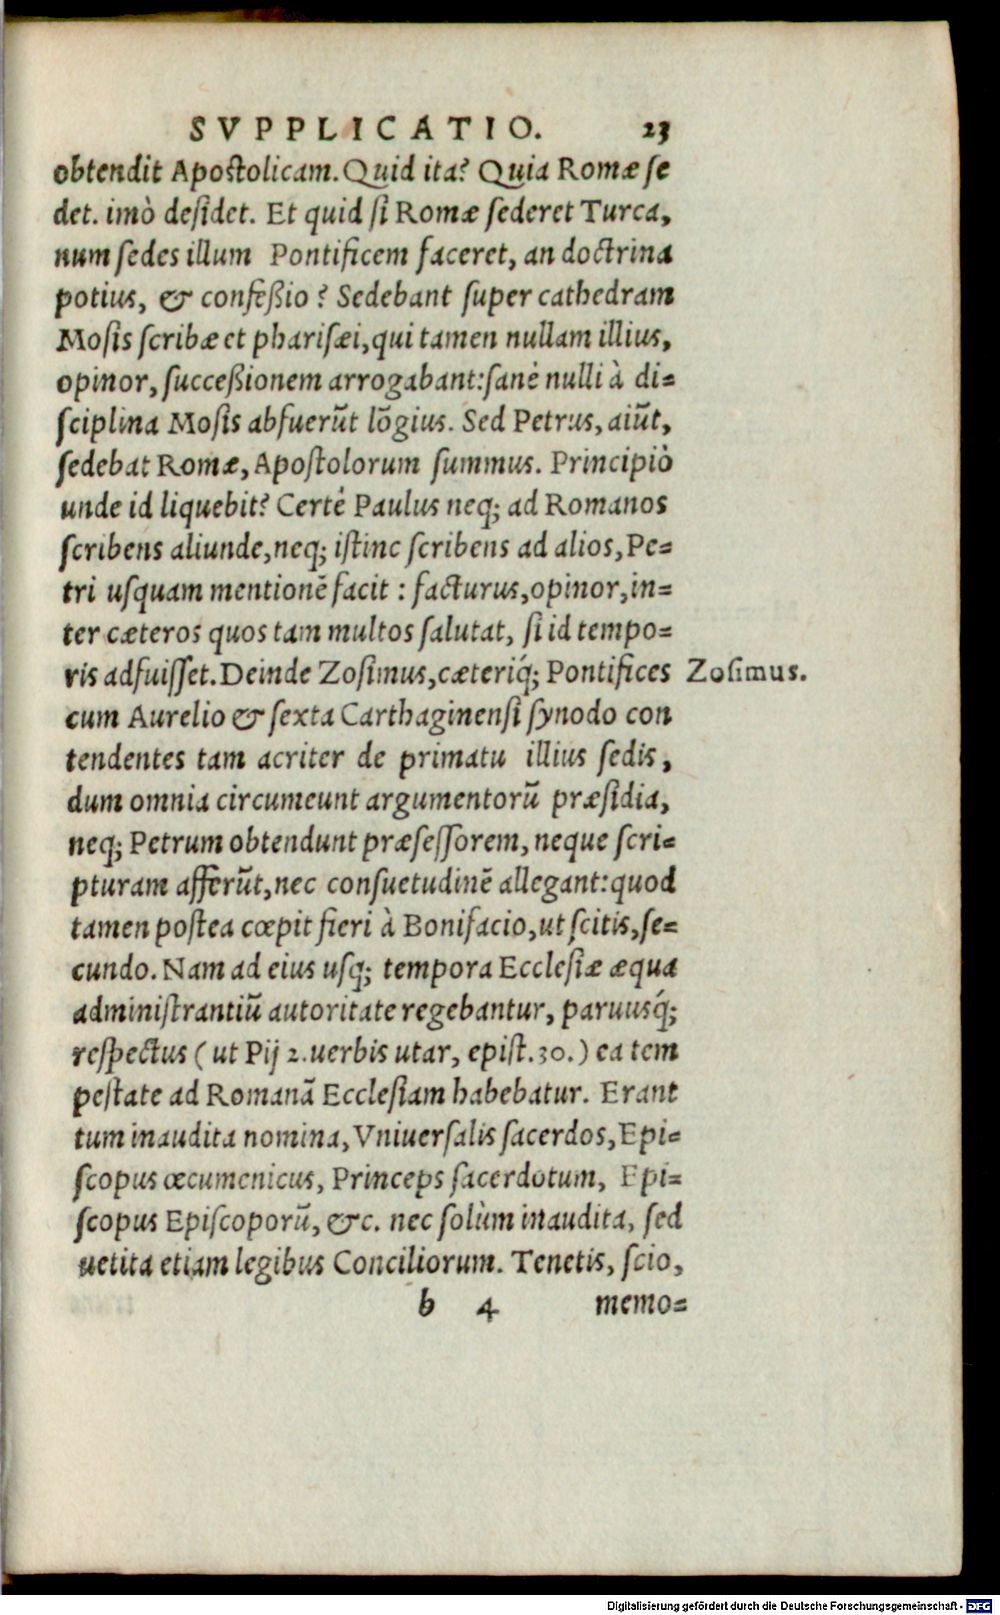 SVPPLICATIO. 23
obtendit Apostolicam. Quid ita? Quia Romæ se
det. imò desidet. Et quid si Romæ sederet Turca,
num sedes illum Pontificem faceret, an doctrina
potius, & confeßio? Sedebant super cathedram
Mosis scribæ et pharisæi, qui tamen nullam illius,
opinor, succeßionem arrogabant: sanè nulli à di=
sciplina Mosis abfuerũt lõgius. Sed Petrus, aiũt,
sedebat Romæ, Apostolorum summus. Principiò
unde id liquebit? Certè Paulus neq; ad Romanos
scribens aliunde, neq; istinc scribens ad alios, Pe=
tri usquam mentionẽ facit: facturus, opinor, in=
ter cæteros quos tam multos salutat, si id tempo=
ris adfuisset. Deinde Zosimus, cæteriq́; Pontifices
Zosimus.
cum Aurelio & sexta Carthaginensi synodo con
tendentes tam acriter de primatu illius sedis,
dum omnia circumeunt argumentorũ præsidia,
neq; Petrum obtendunt præsessorem, neque scri=
pturam afferũt, nec consuetudinẽ allegant: quod
tamen postea cœpit fieri à Bonifacio, ut scitis, se=
cundo. Nam ad eius usq; tempora Ecclesiæ æqua
administrantiũ autoritate regebantur, paruusq́;
respectus (ut Pij 2. uerbis utar, epist. 30.) ea tem
pestate ad Romanã Ecclesiam habebatur. Erant
tum inaudita nomina, Vniuersalis sacerdos, Epi=
scopus œcumenicus, Princeps sacerdotum, Epi=
scopus Episcoporũ, &c. nec solùm inaudita, sed
uetita etiam legibus Conciliorum. Tenetis, scio,
b 4 memo=
Digitalisierung gefördert durch die Deutsche Forschungsgemeinschaft - DFG